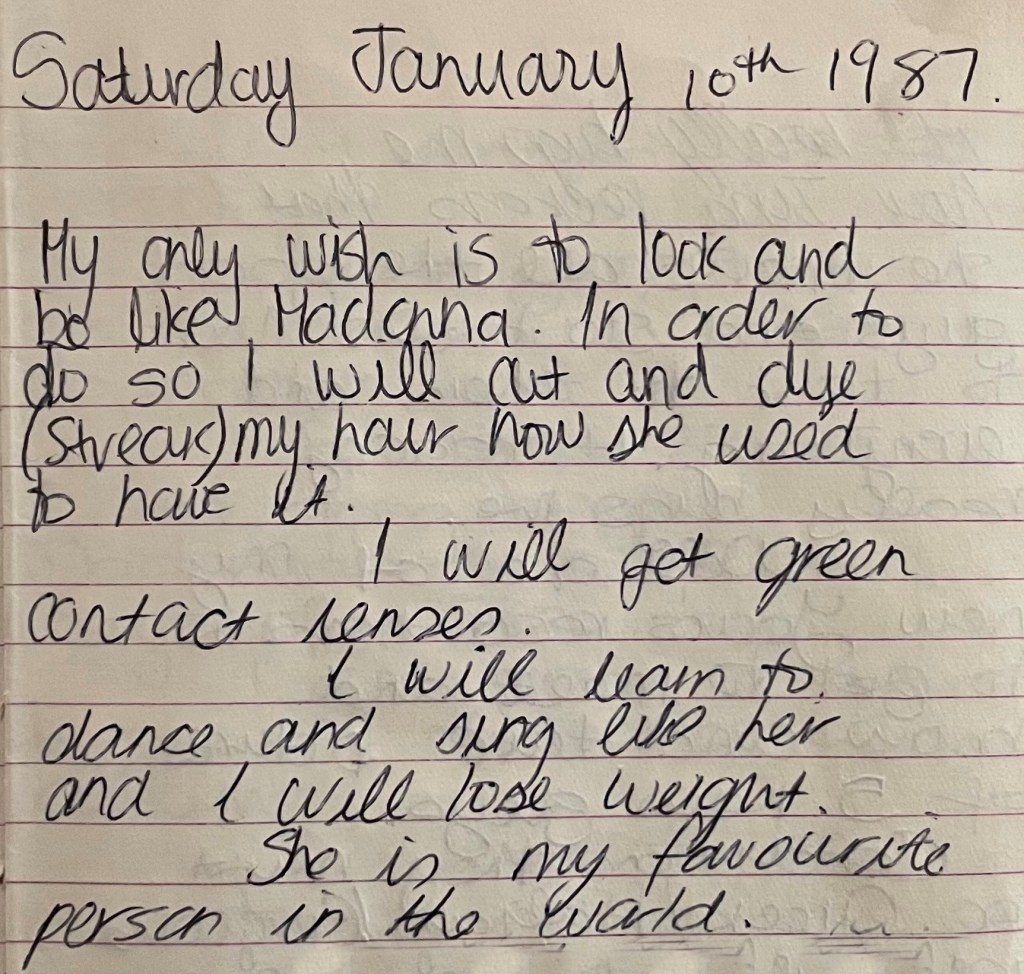 Saturday January 10th 1987.
My only wish is to look and
be like Madonna. In order to
do so I will cut and dye
(streak) my hair how she used
to have it.
I will get green
contact lenses.
I will learn to
dance and sing like her
and I will lose weight.
She is my favourite
person in the world.